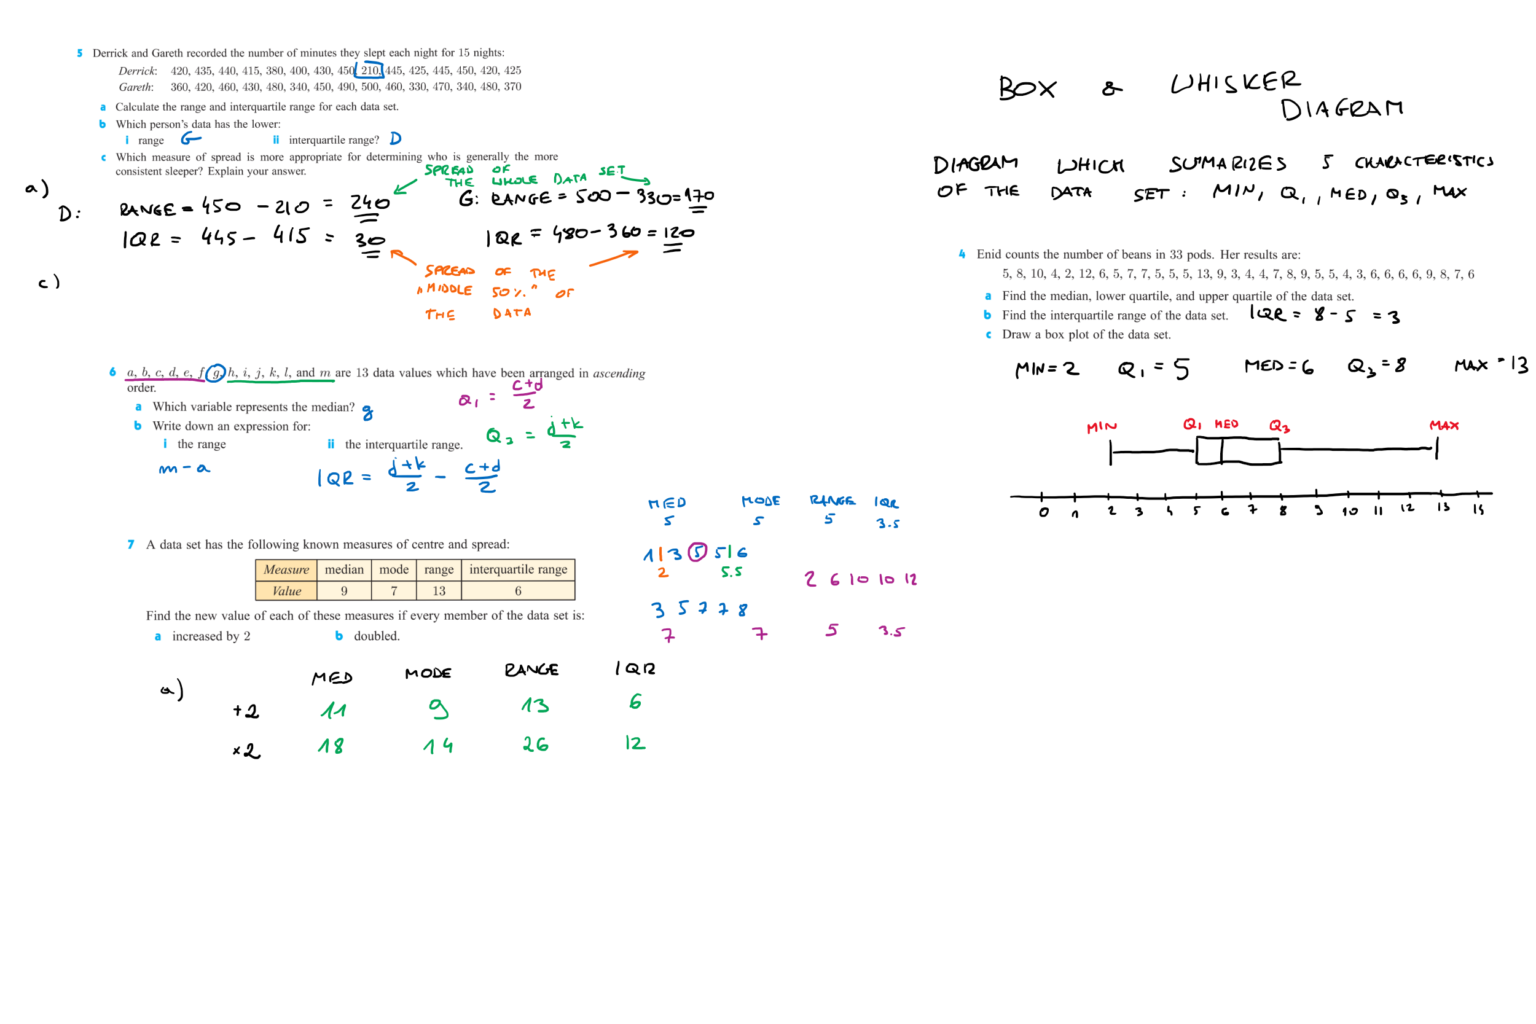 5 Derrick and Gareth recorded the number of minutes they slept each night for 15 nights:
Derrick: 420, 435, 440, 415, 380, 400, 430, 450, 210, 445, 425, 445, 450, 420, 425
Gareth: 360, 420, 460, 430, 480, 340, 450, 490, 500, 460, 330, 470, 340, 480, 370
a Calculate the range and interquartile range for each data set.
b Which person's data has the lower:
i range G ii interquartile range? D
c Which measure of spread is more appropriate for determining who is generally the more
consistent sleeper? Explain your answer.
SPREAD OF
THE WHOLE DATA SET
a)
D: RANGE = 450 - 210 = 240
G: RANGE = 500 - 330 = 170
IQR = 445 - 415 = 30
IQR = 480 - 360 = 120
c)
SPREAD OF THE
"MIDDLE 50%" OF
THE DATA
6 a, b, c, d, e, f, g, h, i, j, k, l, and m are 13 data values which have been arranged in ascending
order.
Q1 = c+d
2
a Which variable represents the median? g
b Write down an expression for:
Q3 = j+k
2
i the range ii the interquartile range.
m - a
IQR = j+k - c+d
2 2
7 A data set has the following known measures of centre and spread:
Measure median mode range interquartile range
Value 9 7 13 6
Find the new value of each of these measures if every member of the data set is:
a increased by 2 b doubled.
MED MODE RANGE IQR
5 5 5 3.5
1|3 5 5|6
2 5.5
2 6 10 10 12
3 5 7 7 8
7 7 5 3.5
a)
MED MODE RANGE IQR
+2 11 9 13 6
×2 18 14 26 12
BOX & WHISKER
DIAGRAM
DIAGRAM WHICH SUMMARIZES 5 CHARACTERISTICS
OF THE DATA SET: MIN, Q1, MED, Q3, MAX
4 Enid counts the number of beans in 33 pods. Her results are:
5, 8, 10, 4, 2, 12, 6, 5, 7, 7, 5, 5, 5, 13, 9, 3, 4, 4, 7, 8, 9, 5, 5, 4, 3, 6, 6, 6, 6, 9, 8, 7, 6
a Find the median, lower quartile, and upper quartile of the data set.
b Find the interquartile range of the data set. IQR = 8 - 5 = 3
c Draw a box plot of the data set.
MIN = 2 Q1 = 5 MED = 6 Q3 = 8 MAX = 13
MIN Q1 MED Q3 MAX
0 1 2 3 4 5 6 7 8 9 10 11 12 13 14